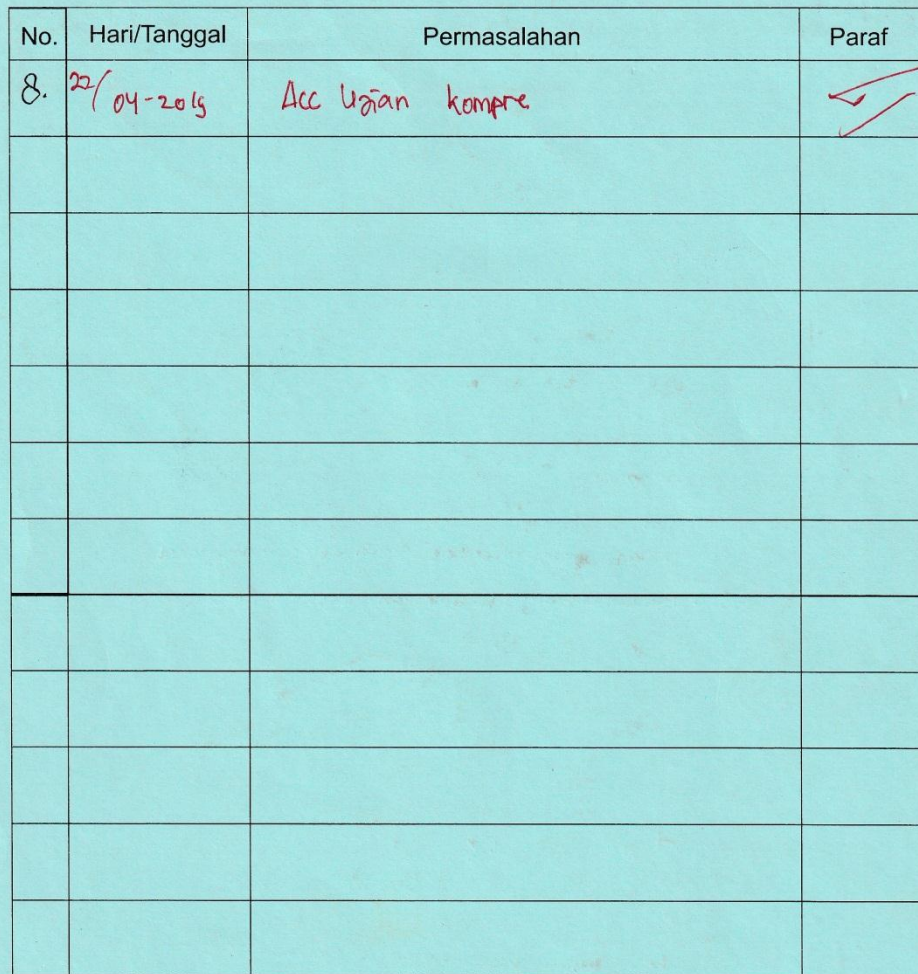 No. Hari/Tanggal Permasalahan Paraf
8. 22/04-2019 Acc Ujian kompre